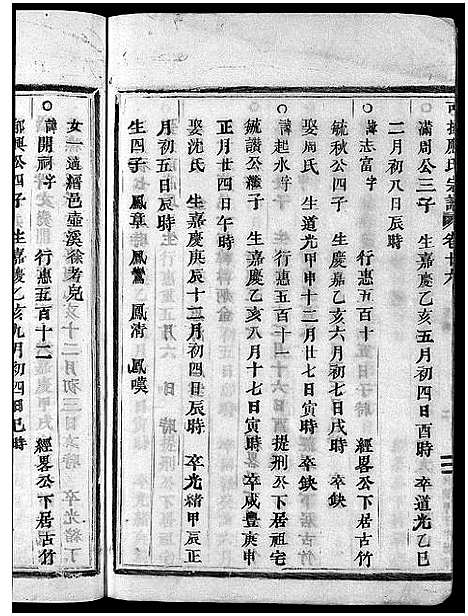 應氏宗譜 卷廿六
滿周公三子 生嘉慶乙亥五月初四日酉時 卒道光乙巳
二月初八日辰時
○諱志富字 行惠五百十 經畧公下居古竹
毓秋公四子 生嘉慶乙亥六月初七日戌時 卒缺
娶周氏 生道光甲申十二月廿七日寅時 卒缺
○諱起水字 行惠五百十一 提刑公下居祖宅
毓讚公繼子 生嘉慶乙亥八月十七日寅時 卒咸豐庚申
正月廿四日午時
娶沈氏 生嘉慶庚辰十二月初四日辰時 卒光緒甲辰正
月初五日辰時
生四子 鳳章 鳳鸞 鳳清 鳳嘆
女一適縉邑壺溪
○諱開祠字 行惠五百十二 經畧公下居古竹
郁興公四子 生嘉慶乙亥九月初四日巳時